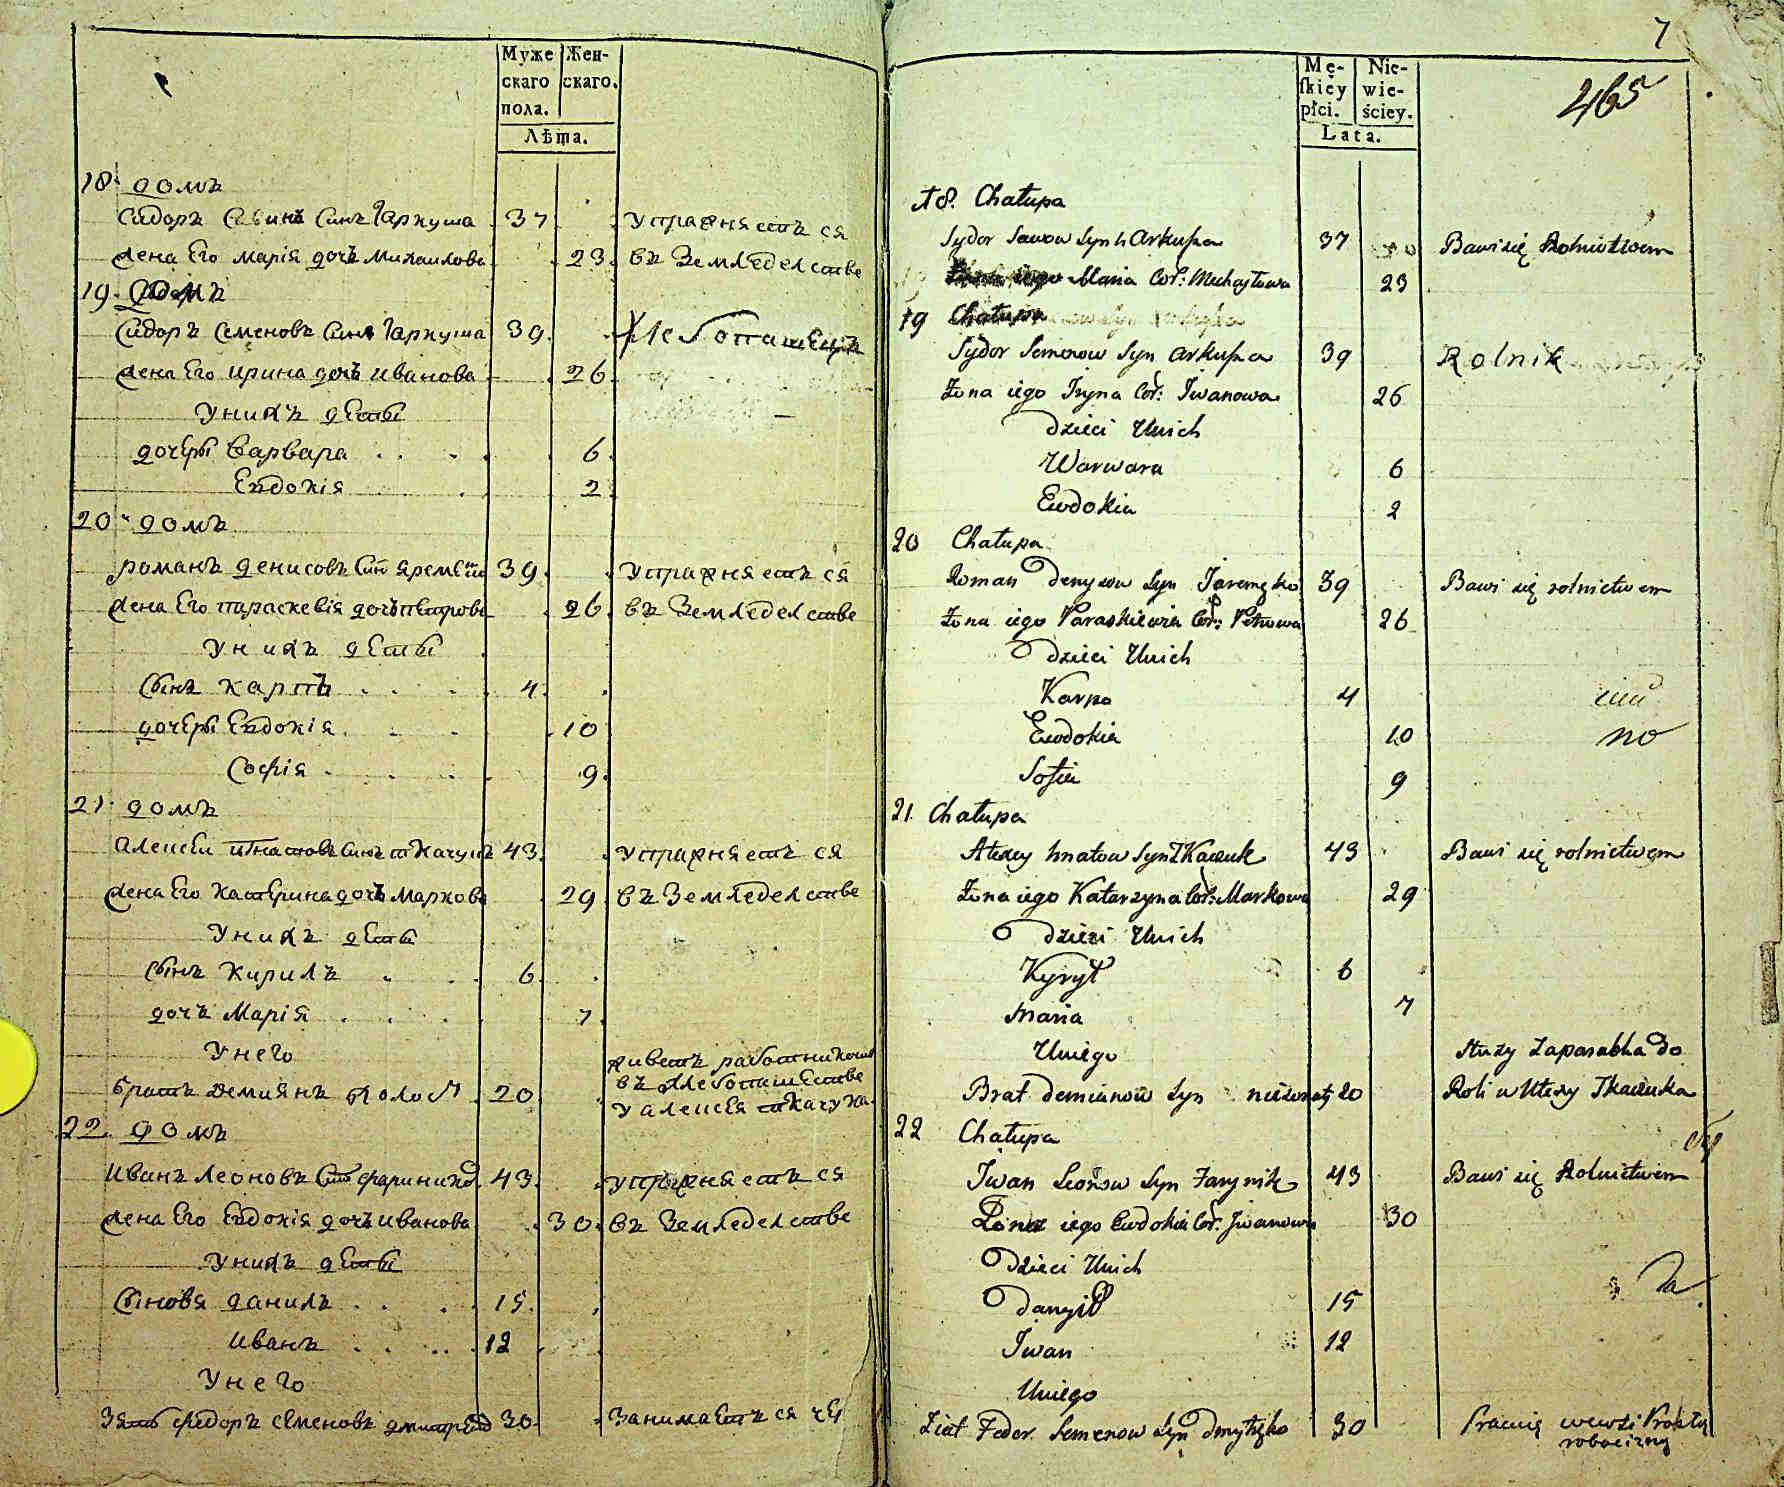 Муже
скаго
пола.
Жен-
скаго.
Лѣта.
18. домъ
Сидоръ Савинъ Синъ Гаркуша 37 упражняетъ ся
жена Его Марія дочъ Михаилова 23. въ Земледелстве
19. Домъ
Сидоръ Семеновъ Синъ Гаркуша 39. Хлебопашецъ
жена Его Ирина дочъ Иванова 26.
Унихъ дЕты
дочЕры Варвара 6.
Евдокія 2.
20. домъ
Романъ Денисовъ Синъ 39. упражняетъ ся
жена Его Параскевія дочъ Петрова 26. въ Земледелстве
Унихъ дЕты
Сынъ Карпъ 4.
дочЕры Евдокія 10
Софія 9.
21. домъ
Алексей Игнатовъ Синъ Ткачукъ 43. упражняетъ ся
жена Его КатЕрина дочъ Маркова 29 въ Земледелстве
Унихъ дЕты
Сынъ Кирилъ 6.
дочъ Марія 7.
Унего живетъ работникомъ
братъ Демиянъ холост 20. въ хлебопашЕстве
у алексЕя ткачука
22. домъ
Иванъ Леоновъ Синъ 43. упражняетъ ся
жена Его Евдокія дочъ Иванова 30. въ Земледелстве
Унихъ дЕты
Сыновя Данилъ 15.
Иванъ 12
Унего
Зять Федоръ сЕменовъ 30. Занимаетъ ся
7
Mę-
ſkiey
płci.
Nie-
wie-
ściey.
Lata.
465
18. Chałupa
Sydor Sawow Syn hArkusza 37 Bawi się Rolnictwem
Żona iego Maria Cór: Michayłowa 23
19 Chałupa
Sydor Semenow Syn Arkusza 39 Rolnik
Żona iego Iryna Cór: Iwanowa 26
Dzieci Unich
Warwara 6
Ewdokia 2
20 Chałupa
Roman Denysow Syn Jaremęko 39 Bawi się rolnictwem
Żona iego Paraskiewia Cór: Petrowa 26
Dzieci Unich
Karpo 4
Ewdokia 10 no
Sofia 9
21. Chałupa
Alexy hnatow Syn Tkaczuk 43 Bawi się rolnictwem
Żona iego Katarzyna Cór: Markowa 29
Dzieci Unich
Kyrył 6
Maria 7
Uniego Służy Zaparobka do
Brat Demianow Syn nieżonaty 20 Roli u Alexy Tkaczuka
22 Chałupa
Iwan Leonow Syn Farynik 43 Bawi się Rolnictwem
Żona iego Ewdokia Cór: Iwanowa 30
Dzieci Unich
Danyił 15
Iwan 12
Uniego
Zieć Fedor Semenow Syn Dmytręko 30 Pracuię